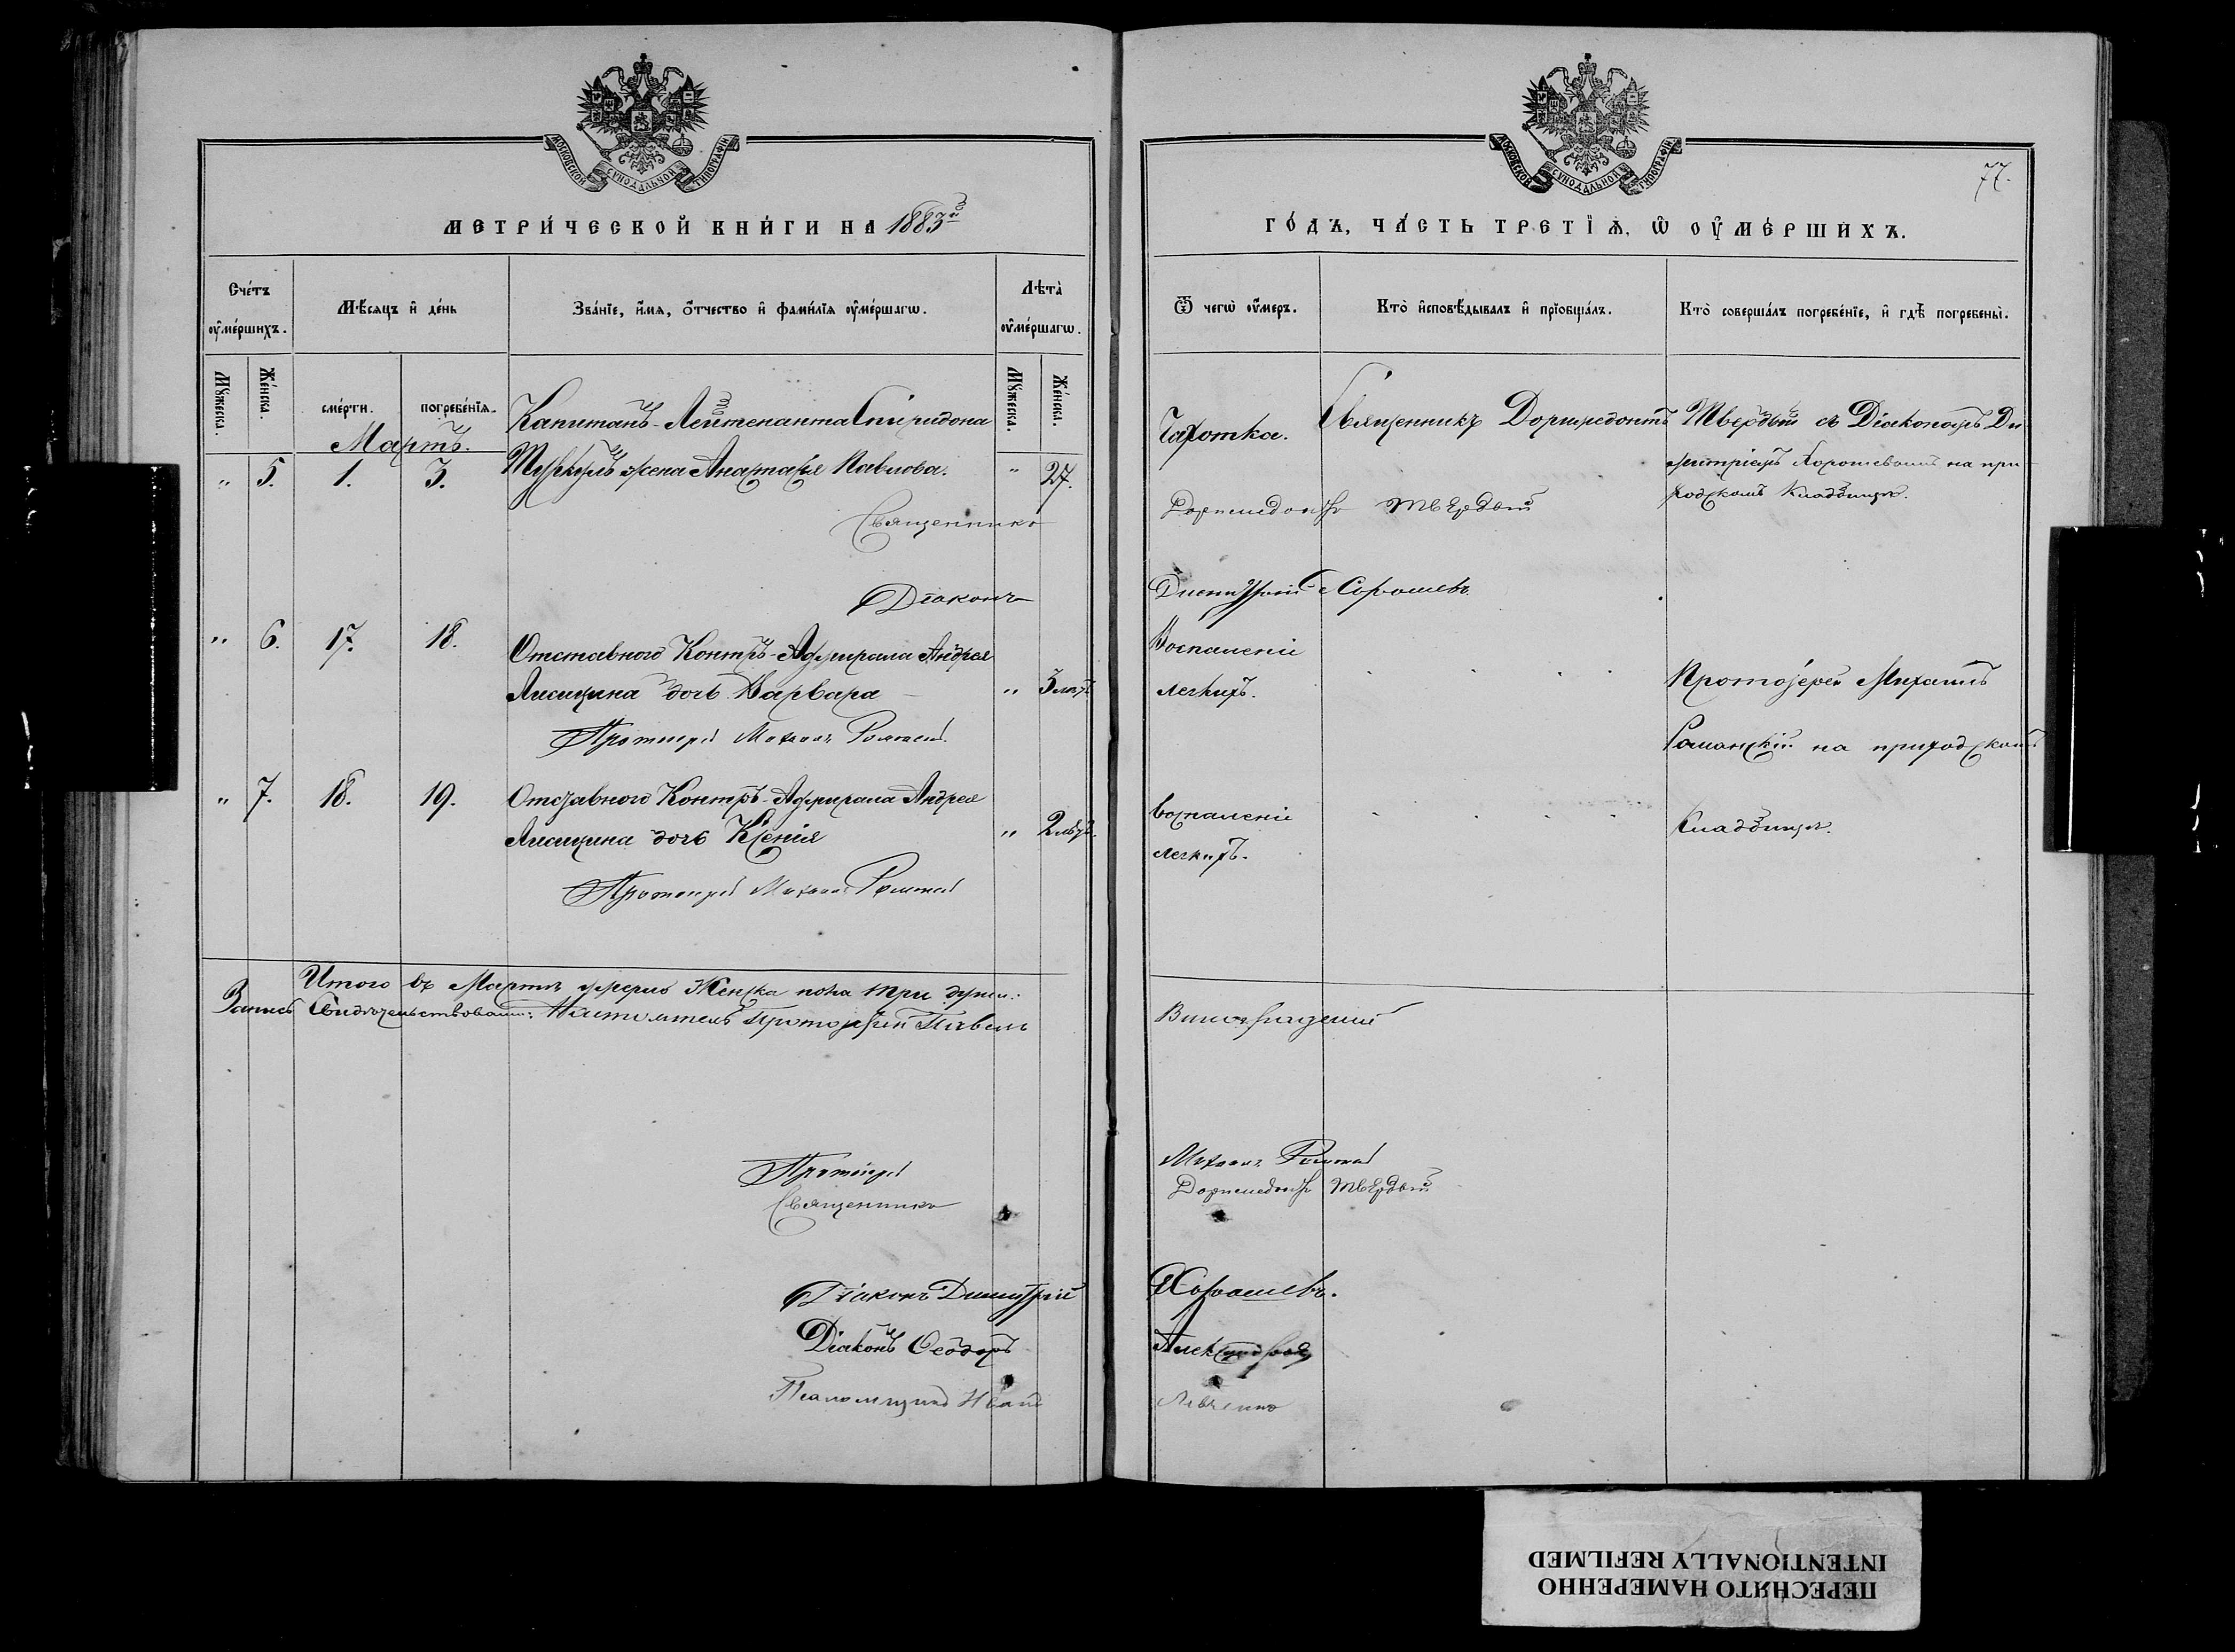 МОСКОВСКОЙ СѴНОДАЛЬНОЙ ТИПОГРАФІИ
МЕТРИ́ЧЕСКОЙ КНИ́ГИ НА 1883й
Сче́тъ ѹ҆ме́ршихъ.
Мѣ́сяцъ и҆ де́нь
Зва́нїе, и҆́мѧ, ѻ҆́тчество и҆ фами́лїѧ ѹ҆ме́ршагѡ.
Лѣта̀ ѹ҆ме́ршагѡ.
Мꙋ́жеска.
Же́нска.
сме́рти.
погребе́нїѧ.
Мꙋ́жеска.
Же́нска.
Мартъ.
Капитанъ-Лейтенанта Спиридона
" 5. 1. 3. жена Анастасія Павлова. " 27.
Священникъ
Діаконъ
" 6. 17. 18. Отставного Контръ-Адмирала Андрея
Лисицина дочь Варвара " 3 лѣтъ
Протоіерей Михаилъ
" 7. 18. 19. Отставного Контръ-Адмирала Андрея
Лисицина дочь Ксенія " 2 лѣтъ.
Протоіерей Михаилъ
Итого въ Мартѣ умерло Женска пола три души.
Запись свидѣтельствовалъ: Настоятель Протоіерей Павелъ
Протоіерей
Священникъ
Діаконъ Димитрій
Діаконъ Ѳеодоръ
Псаломщикъ Иванъ
МОСКОВСКОЙ СѴНОДАЛЬНОЙ ТИПОГРАФІИ
77.
ГО́ДЪ, ЧА́СТЬ ТРЕТЇѦ, Ѡ ОУ҆МЕ́РШИХЪ.
Ѿ чегѡ̀ ѹ҆́меръ.
Кто̀ и҆сповѣ́дывалъ и҆ прїобща́лъ.
Кто̀ соверша́лъ погребе́нїе, и҆ гдѣ̀ погребены̀.
Чахотка. Священникъ Доримедонтъ Твердый съ Діакономъ Ди
митріемъ Хорошевымъ на при
ходскомъ кладбищѣ.
Доримедонтъ Твердый
Димитрій Хорошевъ
Воспаленіе
легкихъ.
Протоіерей Михаилъ
Романскій на приходскомъ
воспаленіе
кладбищѣ.
легкихъ.
Виноградскій
Михаилъ
Доримедонтъ Твердый
Хорошевъ.
Левченко
ПЕРЕСНЯТО НАМЕРЕННО
INTENTIONALLY REFILMED